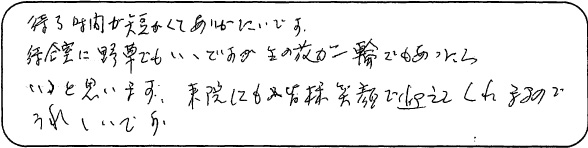 待つ時間が短かくてありがたいです。
待合室に野草でもいいですが生の花が一輪でもあったら
いいと思います。来院にも皆様笑顔で迎えてくれますので
うれしいです。